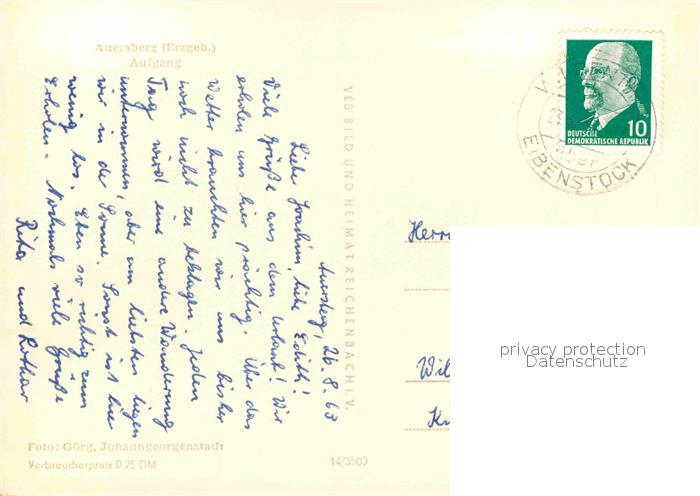 Auersberg (Erzgeb.)
Aufgang
Auersberg, 26.8.63
Liebe Joachim, liebe Edith!
Viele Grüße aus dem Urlaub! Wir
erholen uns hier prächtig. Über das
Wetter brauchten wir uns bisher
noch nicht zu beklagen. Jeden
Tag wird eine andere Wanderung
unternommen, aber am liebsten liegen
wir in der Sonne. Sonst ist hier
wenig los. Eben so richtig zum
Erholen. Nochmals viele Grüße
Rita und Lothar
VEB BILD UND HEIMAT REICHENBACH I. V.
Foto: Görg, Johanngeorgenstadt
Verbraucherpreis 0.25 DM
14/3500
DEUTSCHE
DEMOKRATISCHE REPUBLIK
10
über
EIBENSTOCK
Herrn
Wil
privacy protection
Datenschutz